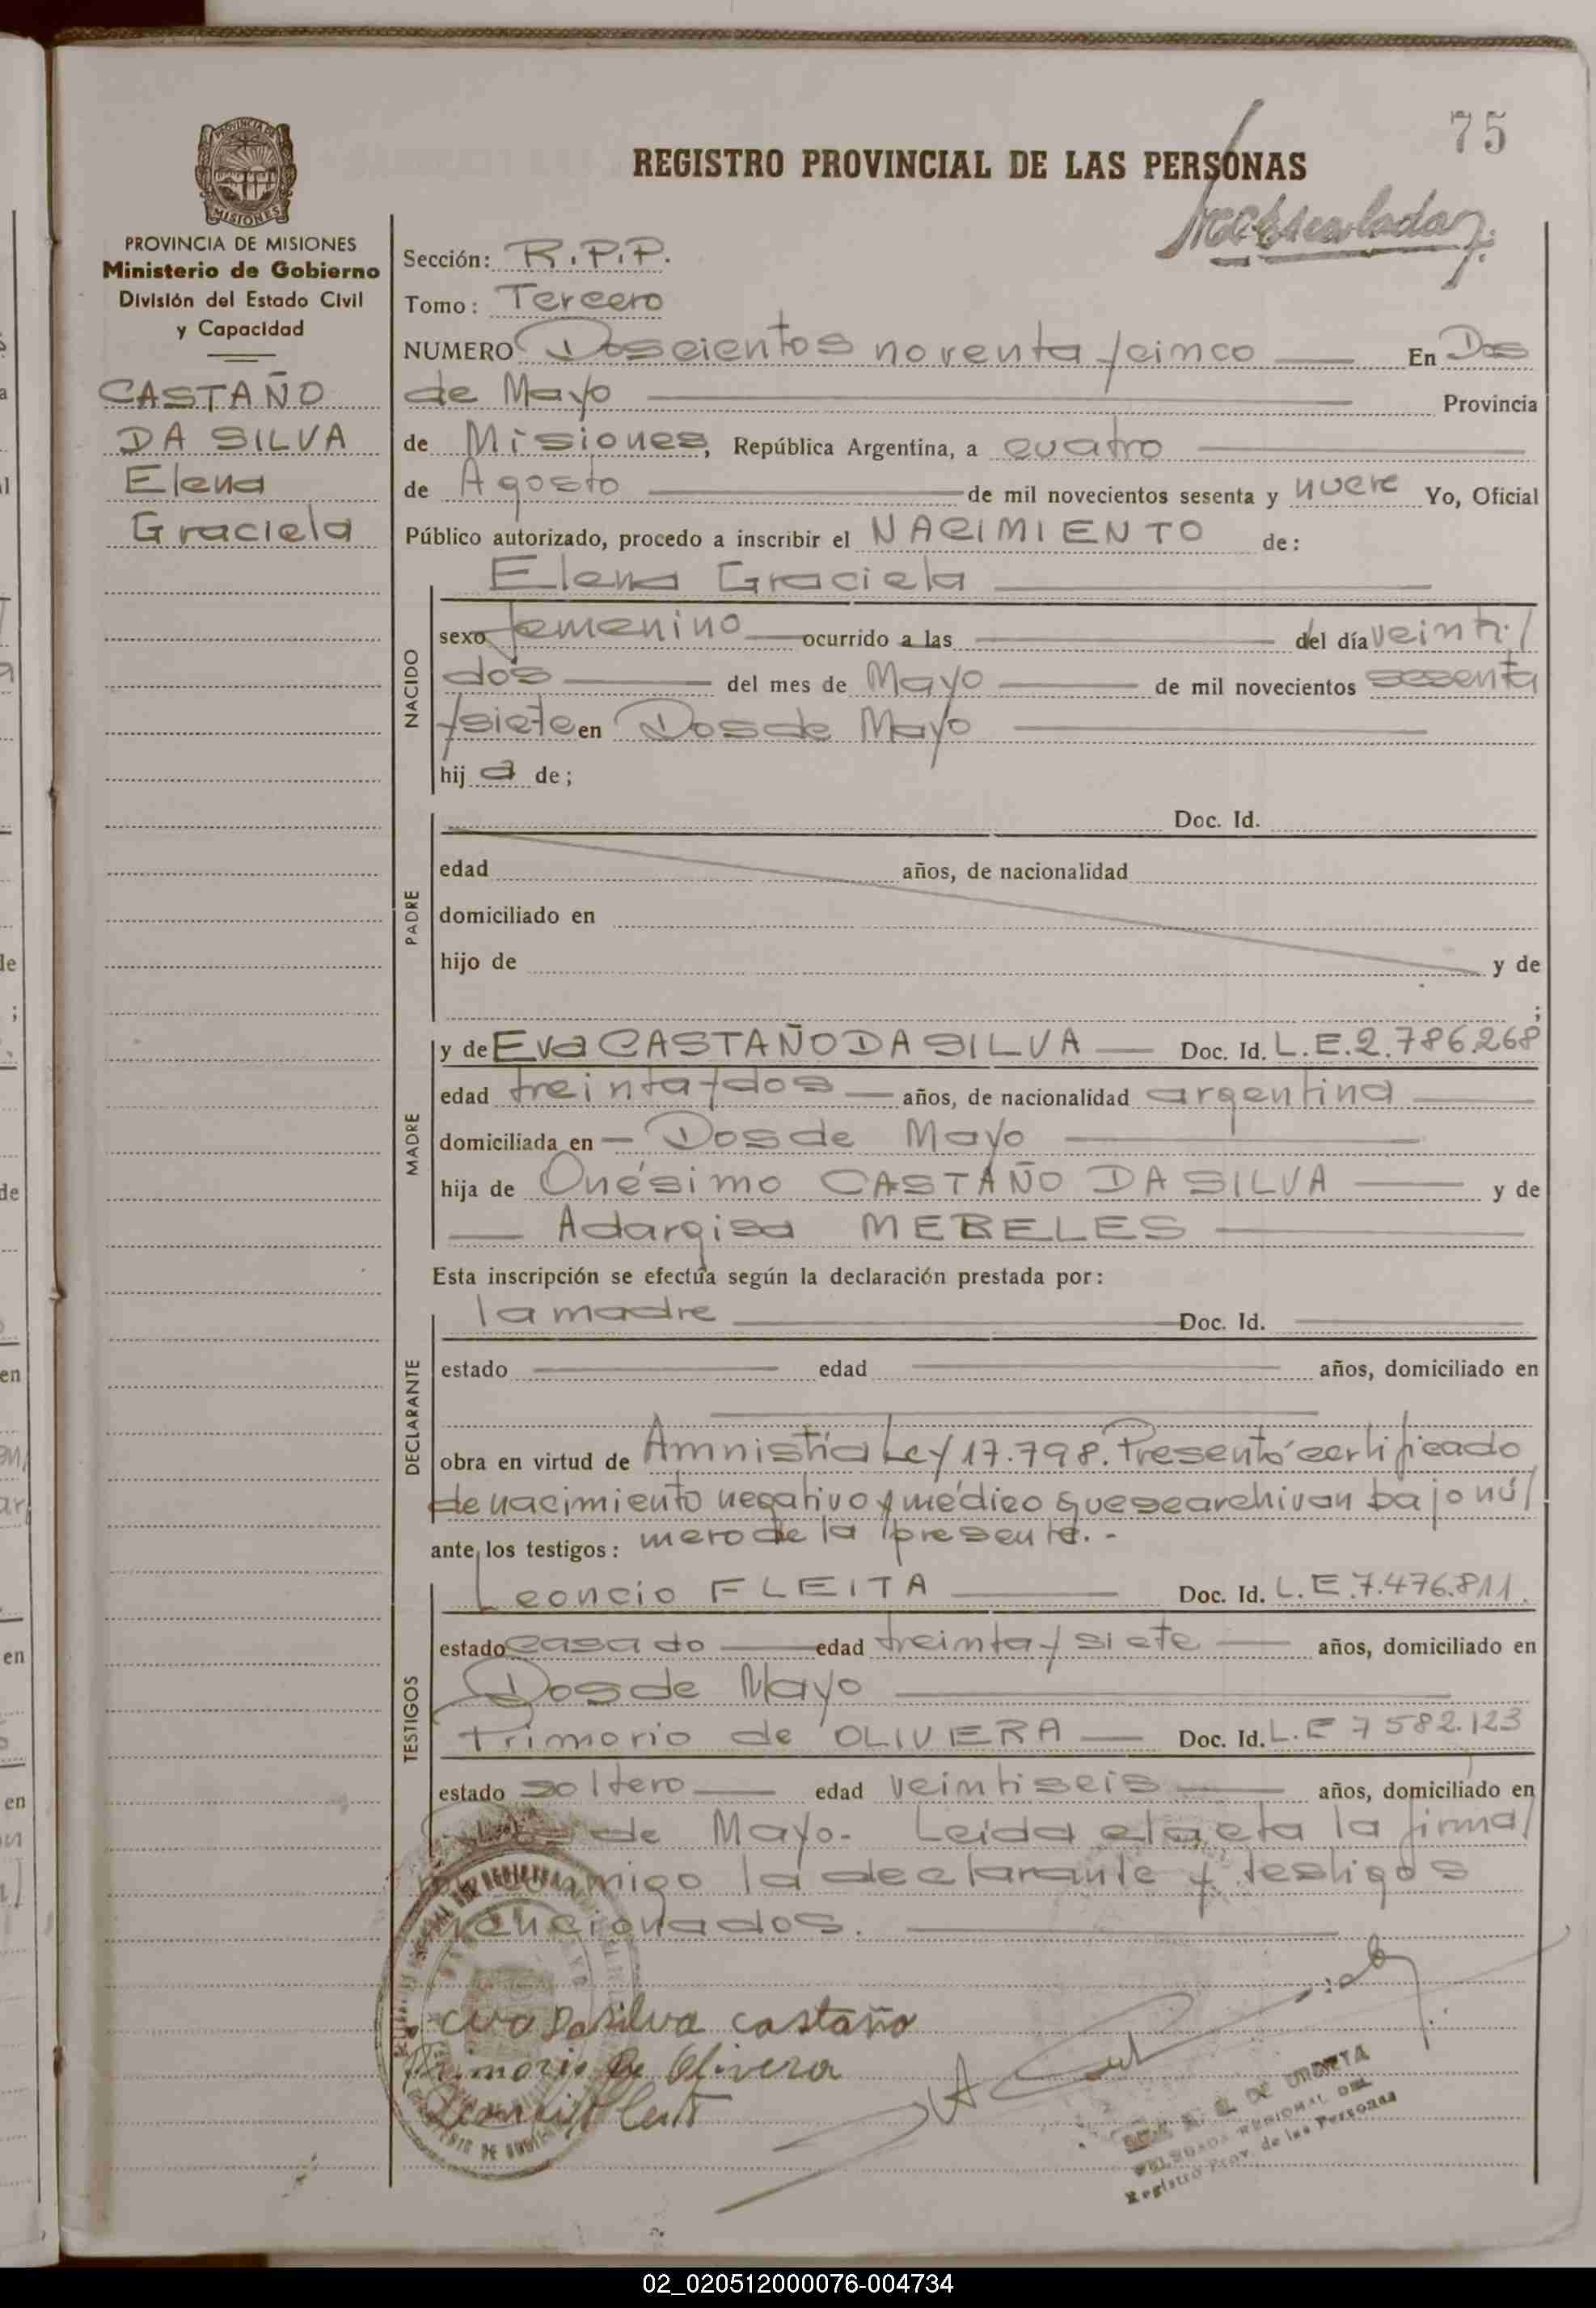 75
REGISTRO PROVINCIAL DE LAS PERSONAS
PROVINCIA DE MISIONES
Ministerio de Gobierno
División del Estado Civil
y Capacidad
CASTAÑO
DA SILVA
Elena
Graciela
Sección: R.P.P.
Tomo: Tercero
NUMERO Doscientos noventa y cinco En Dos
de Mayo Provincia
de Misiones, República Argentina, a cuatro
de Agosto de mil novecientos sesenta y nueve Yo, Oficial
Público autorizado, procedo a inscribir el NACIMIENTO de:
NACIDO
Elena Graciela
sexo femenino ocurrido a las del día veinti/
dos del mes de Mayo de mil novecientos sesenta
y siete en Dos de Mayo
hij a de;
PADRE
Doc. Id.
edad años, de nacionalidad
domiciliado en
hijo de y de
;
MADRE
y de Eva CASTAÑO DA SILVA Doc. Id. L.E.2.786.268
edad treinta y dos años, de nacionalidad argentina
domiciliada en Dos de Mayo
hija de Onésimo CASTAÑO DA SILVA y de
Adargisa MEBELES
Esta inscripción se efectúa según la declaración prestada por:
DECLARANTE
la madre Doc. Id.
estado edad años, domiciliado en
obra en virtud de Amnistía Ley 17.798. Presentó certificado
de nacimiento negativo y médico que se archivan bajo nú/
ante los testigos: mero de la presente.-
TESTIGOS
Leoncio FLEITA Doc. Id. L.E.7.476.811.
estado casado edad treinta y siete años, domiciliado en
Dos de Mayo
Primorio de OLIVERA Doc. Id. L.E 7 582.123
estado soltero edad veintiseis años, domiciliado en
Dos de Mayo- Leída el acta la firma/
conmigo la declarante y testigos
mencionados.
eva Dasilva castaño
Primorio De Olivera
DE URDETA
DELEGADA REGIONAL DEL
Registro Prov. de las Personas
02_020512000076-004734